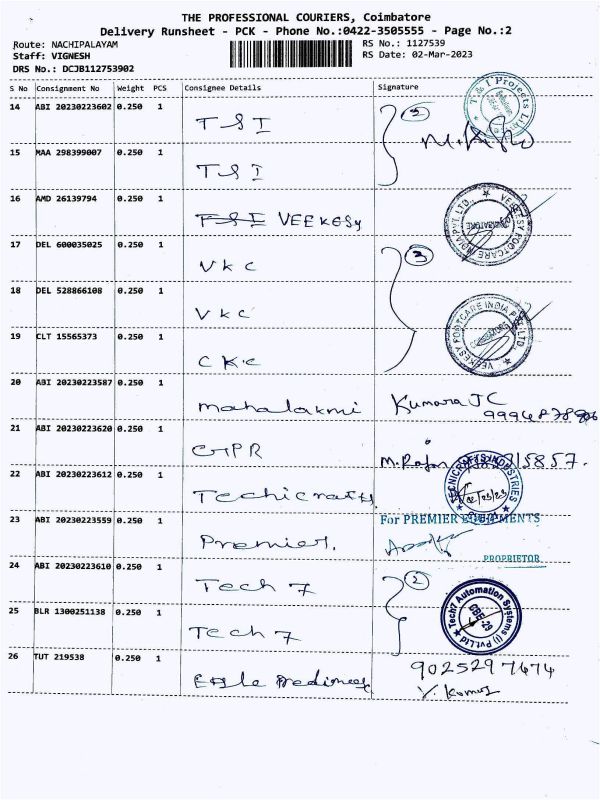 THE PROFESSIONAL COURIERS, Coimbatore
Delivery Runsheet - PCK - Phone No.:0422-3505555 - Page No.:2
Route: NACHIPALAYAM RS No.: 1127539
Staff: VIGNESH RS Date: 02-Mar-2023
DRS No.: DCJB112753902
S No Consignment No Weight PCS Consignee Details Signature
14 ABI 20230223602 0.250 1 TSI 2
15 MAA 298399007 0.250 1 TSI
16 AMD 26139794 0.250 1 TSI VEEKESY
VEEKESY FOOTCARE INDIA PVT. LTD.,
COIMBATORE
17 DEL 600035025 0.250 1 VKC 3
18 DEL 528866108 0.250 1 VKC
VEEKESY FOOTCARE INDIA PVT. LTD.
COIMBATORE
19 CLT 15565373 0.250 1 CKC
20 ABI 20230223587 0.250 1 mahalakmi Kumara JC
21 ABI 20230223620 0.250 1 GPR
22 ABI 20230223612 0.250 1
TECHNICRAFTS INDUSTRIES
23 ABI 20230223559 0.250 1 Premier. For PREMIER EQUIPMENTS
PROPRIETOR
24 ABI 20230223610 0.250 1 Tech 7 2
25 BLR 1300251138 0.250 1 Tech 7
Tech7 Automation Systems (I) Pvt Ltd
26 TUT 219538 0.250 1 9025297674
V. Kumar